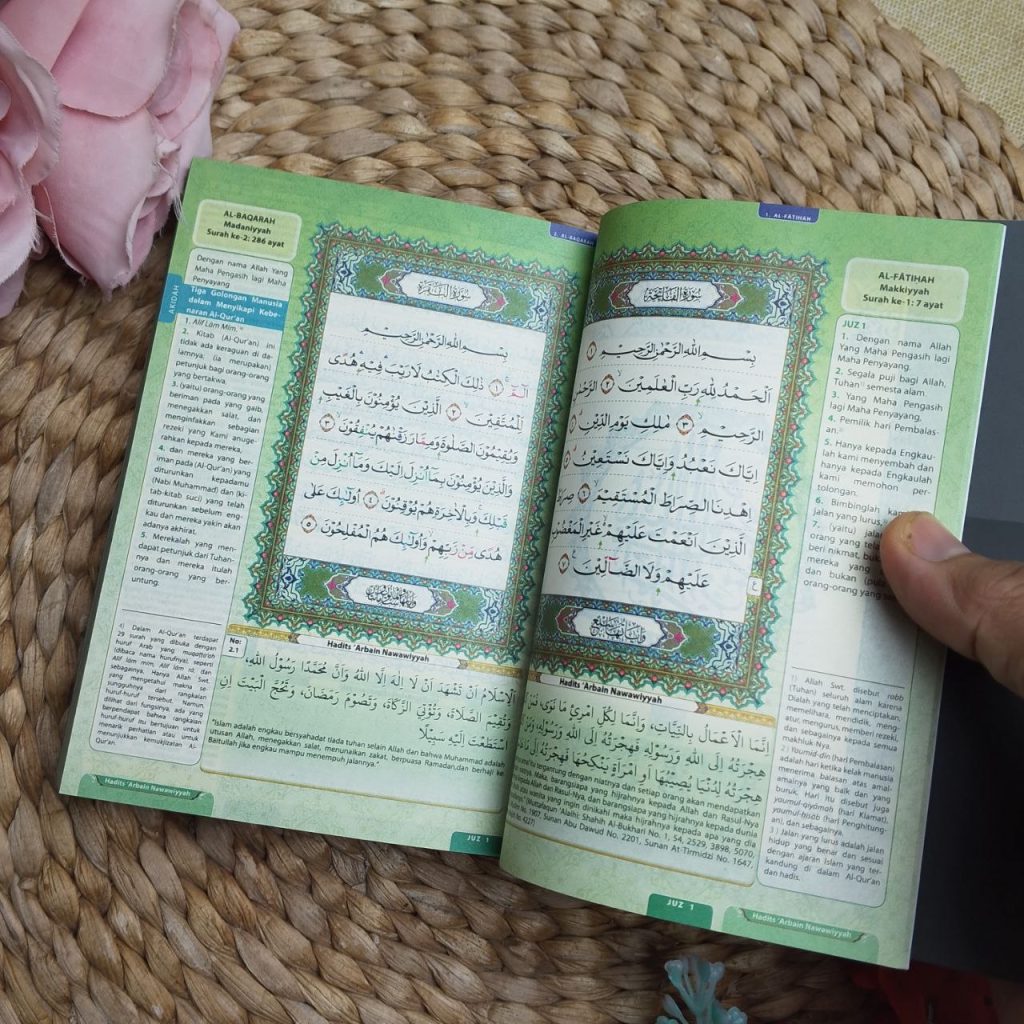 1. AL-FĀTIḤAH
AL-FĀTIḤAH
Makkiyyah
Surah ke-1: 7 ayat
JUZ 1
1. Dengan nama Allah
Yang Maha Pengasih lagi
Maha Penyayang.
2. Segala puji bagi Allah,
Tuhan¹⁾ semesta alam
3. Yang Maha Pengasih
lagi Maha Penyayang,
4. Pemilik hari Pembalas-
an.²⁾
5. Hanya kepada Engkau-
lah kami menyembah dan
hanya kepada Engkaulah
kami memohon per-
tolongan.
6. Bimbinglah
jalan yang lurus,
7. (yaitu) jalan
orang yang
beri nikmat,
dan bukan
orang-orang yang
سُوْرَةُ الْفَاتِحَةِ
بِسْمِ اللّٰهِ الرَّحْمٰنِ الرَّحِيْمِ ١
اَلْحَمْدُ لِلّٰهِ رَبِّ الْعٰلَمِيْنَ ٢ الرَّحْمٰنِ
الرَّحِيْمِ ٣ مٰلِكِ يَوْمِ الدِّيْنِ
اِيَّاكَ نَعْبُدُ وَاِيَّاكَ نَسْتَعِيْنُ
اِهْدِنَا الصِّرَاطَ الْمُسْتَقِيْمَ ٦ صِرَاطَ
الَّذِيْنَ اَنْعَمْتَ عَلَيْهِمْ غَيْرِ الْمَغْضُوْبِ
عَلَيْهِمْ وَلَا الضَّاۤلِّيْنَ ٧
ع
Hadits 'Arbain Nawawiyyah
إِنَّمَا الْأَعْمَالُ بِالنِّيَّاتِ، وَإِنَّمَا لِكُلِّ امْرِئٍ مَا نَوَى، فَمَنْ
هِجْرَتُهُ إِلَى اللهِ وَرَسُوْلِهِ فَهِجْرَتُهُ إِلَى اللهِ وَرَسُوْلِهِ،
هِجْرَتُهُ لِدُنْيَا يُصِيْبُهَا أَوِ امْرَأَةٍ يَنْكِحُهَا فَهِجْرَتُهُ إِلَى مَا
tergantung dengan niatnya dan setiap orang akan mendapatkan
Maka, barangsiapa yang hijrahnya kepada Allah dan Rasul-Nya
kepada Allah dan Rasul-Nya, dan barangsiapa yang hijrahnya kepada dunia
atau wanita yang ingin dinikahi maka hijrahnya kepada apa yang dia
(Muttafaqun 'Alaihi: Shahih Al-Bukhari No. 1, 54, 2529, 3898, 5070,
No. 1907, Sunan Abu Dawud No. 2201, Sunan At-Tirmidzi No. 1647,
No. 4227)
1) Allah Swt. disebut rabb
(Tuhan) seluruh alam karena
Dialah yang menciptakan,
memelihara, mendidik, meng-
atur, mengurus, memberi rezeki,
dan sebagainya kepada semua
makhluk-Nya.
2) Yaumid-dīn (hari Pembalasan)
adalah hari ketika kelak manusia
menerima balasan atas amal-
amalnya yang baik dan yang
buruk. Hari itu disebut juga
yaumul-qiyāmah (hari Kiamat),
yaumul-ḥisāb (hari Penghitung-
an), dan sebagainya.
3) Jalan yang lurus adalah jalan
hidup yang benar dan sesuai
dengan ajaran Islam yang ter-
kandung di dalam Al-Qur'an
dan hadis.
JUZ 1
Hadits 'Arbain Nawawiyyah
2. AL-BAQARAH
AL-BAQARAH
Madaniyyah
Surah ke-2: 286 ayat
Dengan nama Allah Yang
Maha Pengasih lagi Maha
Penyayang
AKIDAH
Tiga Golongan Manusia
dalam Menyikapi Kebe-
naran Al-Qur'an
1. Alif Lām Mīm.⁴⁾
2. Kitab (Al-Qur'an) ini
tidak ada keraguan di da-
lamnya; (ia merupakan)
petunjuk bagi orang-orang
yang bertakwa,
3. (yaitu) orang-orang yang
beriman pada yang gaib,
menegakkan salat, dan
menginfakkan sebagian
rezeki yang Kami anuge-
rahkan kepada mereka,
4. dan mereka yang ber-
iman pada (Al-Qur'an) yang
diturunkan kepadamu
(Nabi Muhammad) dan (ki-
tab-kitab suci) yang telah
diturunkan sebelum eng-
kau dan mereka yakin akan
adanya akhirat.
5. Merekalah yang men-
dapat petunjuk dari Tuhan-
nya dan mereka itulah
orang-orang yang ber-
untung.
سُوْرَةُ الْبَقَرَةِ
بِسْمِ اللّٰهِ الرَّحْمٰنِ الرَّحِيْمِ
الۤمّۤ ١ ذٰلِكَ الْكِتٰبُ لَا رَيْبَ فِيْهِ هُدًى
لِّلْمُتَّقِيْنَ ٢ الَّذِيْنَ يُؤْمِنُوْنَ بِالْغَيْبِ
وَيُقِيْمُوْنَ الصَّلٰوةَ وَمِمَّا رَزَقْنٰهُمْ يُنْفِقُوْنَ ٣
وَالَّذِيْنَ يُؤْمِنُوْنَ بِمَآ اُنْزِلَ اِلَيْكَ وَمَآ اُنْزِلَ مِنْ
قَبْلِكَ وَبِالْاٰخِرَةِ هُمْ يُوْقِنُوْنَ ٤ اُولٰۤىِٕكَ عَلٰى
هُدًى مِّنْ رَّبِّهِمْ وَاُولٰۤىِٕكَ هُمُ الْمُفْلِحُوْنَ ٥
No:
2.1
Hadits 'Arbain Nawawiyyah
الْإِسْلَامُ أَنْ تَشْهَدَ أَنْ لَا إِلَهَ إِلَّا اللهُ وَأَنَّ مُحَمَّدًا رَسُوْلُ اللهِ،
وَتُقِيْمَ الصَّلَاةَ، وَتُؤْتِيَ الزَّكَاةَ، وَتَصُوْمَ رَمَضَانَ، وَتَحُجَّ الْبَيْتَ إِنِ
اسْتَطَعْتَ إِلَيْهِ سَبِيْلًا
"Islam adalah engkau bersyahadat tiada tuhan selain Allah dan bahwa Muhammad adalah
utusan Allah, menegakkan salat, menunaikan zakat, berpuasa Ramadan, dan berhaji ke
Baitullah jika engkau mampu menempuh jalannya."
4) Dalam Al-Qur'an terdapat
29 surah yang dibuka dengan
huruf Arab yang muqaṭṭa'ah
(dibaca nama hurufnya), seperti
Alif lām mīm, Alif lām rā, dan
sebagainya. Hanya Allah Swt.
yang mengetahui makna se-
sungguhnya dari rangkaian
huruf-huruf tersebut. Namun,
dilihat dari fungsinya, ada yang
berpendapat bahwa rangkaian
huruf-huruf itu bertujuan untuk
menarik perhatian atau untuk
menunjukkan kemukjizatan Al-
Qur'an.
Hadits 'Arbain Nawawiyyah
JUZ 1